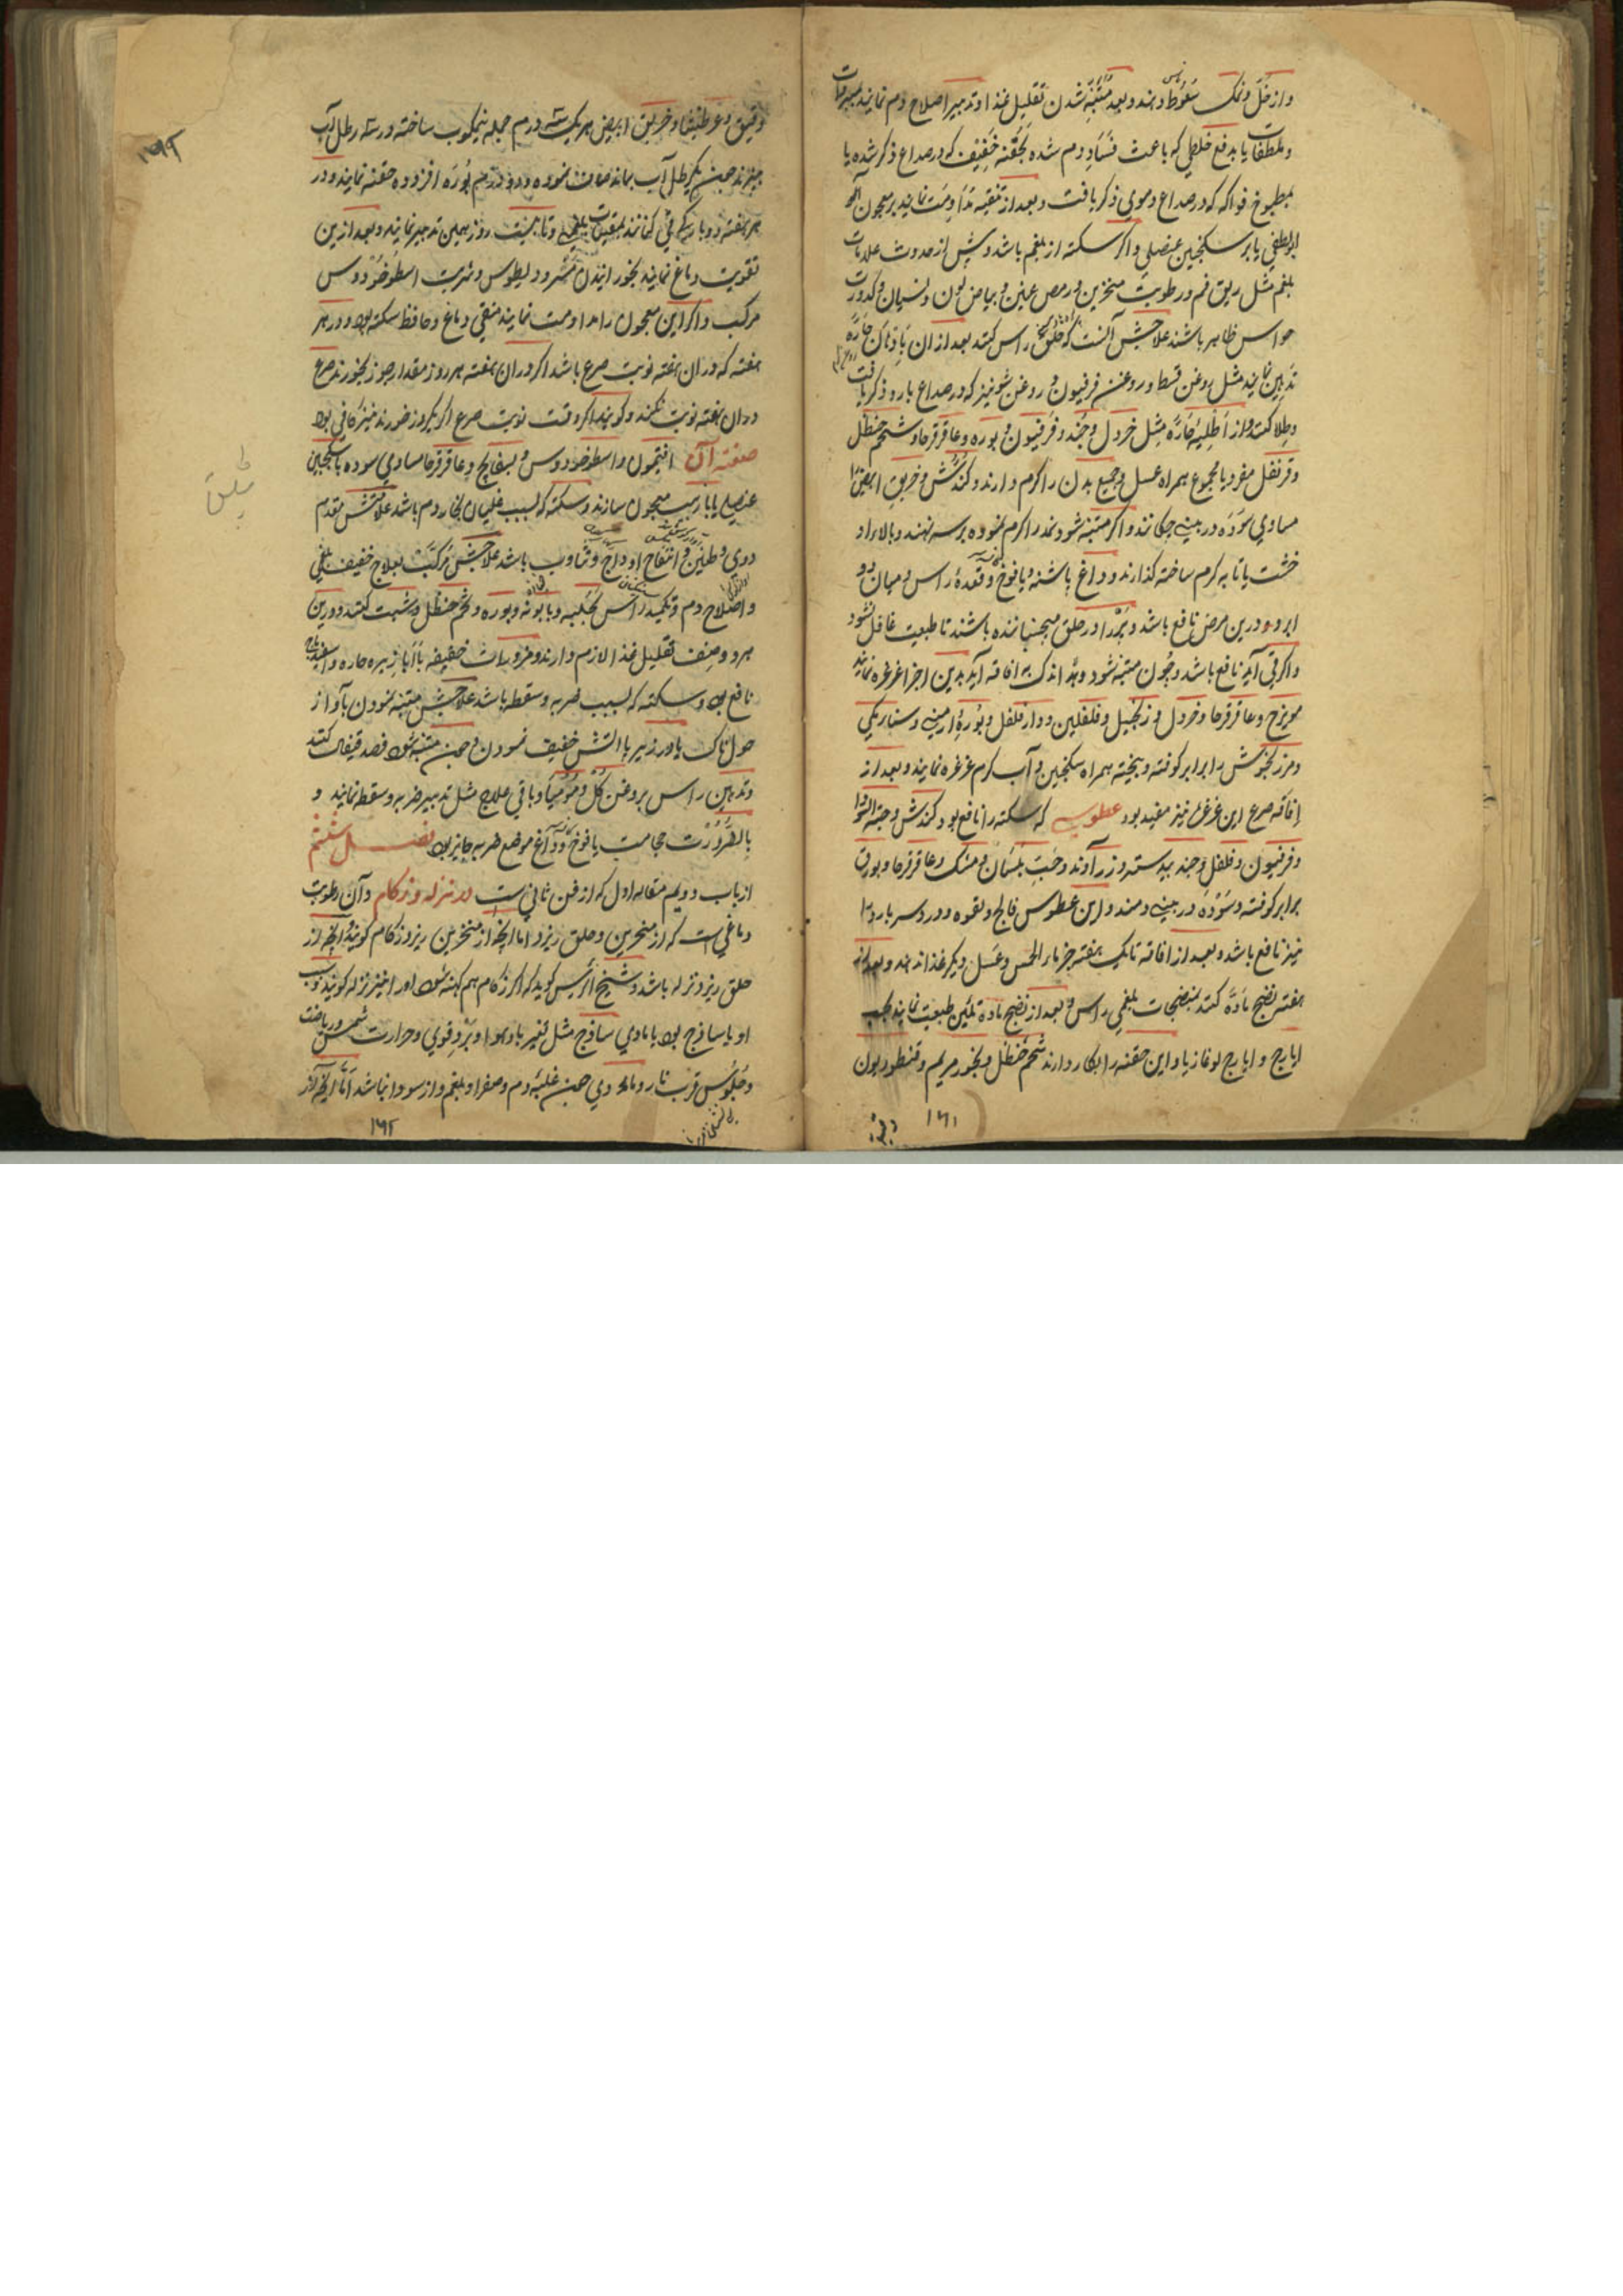 واز خل و نمک سعوط دهند و بعد متنبه شدن تقلیل غذا و تدبیر اصلاح دم نمایند بمبردات
و ملطفات یا بدفع خلطی که باعث فساد دم شده بحقنه خفیف که در صداع ذکر شده یا
بمطبوخ فواکه که در صداع دموی ذکر یافت و بعد از تنقیه مداومت نمایند بر معجون
یا بر سکنجبین عنصلی و اگر سکته از بلغم باشد و پیش از حدوث علامات
بلغم مثل ریق فم و رطوبت منخرین و رمص عینین و بیاض لون و نسیان و کدورت
حواس ظاهر باشند علاجش آنست که حلق راس کنند بعد از ان بادهان حاره
تدهین نمایند مثل روغن قسط و روغن فرفیون و روغن شونیز که در صداع بارد ذکر یافت
و طلا کنند از اطلیه حاره مثل خردل و جند و فرفیون و بوره و عاقرقرحا و شحم حنظل
و قرنفل مفرد یا مجموع همراه عسل و جمیع بدن را گرم دارند و کندش و خربق ابیض
مساوی سوده در بینی چکانند و اگر متنبه نشود نمد را گرم نموده بر سر نهند و بالا او
خشت یا تابه گرم ساخته گذارند و داغ پاشنه و یافوخ و قمحدوه راس و میان دو
ابرو درین مرض نافع باشد و پر را در حلق میجنبانیده باشند تا طبیعت غافل نشود
و اگر قی آید نافع باشد و چون متنبه شود و اندک به افاقه آید بدین اجزا غرغره نمایند
مویزج و عاقرقرحا و خردل و زنجبیل و فلفلین و دارفلفل و بوره ارمنی و سنا مکی
و مرزنجوش را برابر کوفته و بیخته همراه سکنجبین و آب گرم غرغره نمایند و بعد از
افاقه صرع این غرغره نیز مفید بود عطوس که سکته را نافع بود کندش و حبة السودا
و فرفیون و فلفل و جند بیدستر و زراوند و حب بلسان و مشک و عاقرقرحا و بورق
برابر کوفته و سوده در بینی دمند و این عطوس فالج و لقوه و درد سر بارد را
نیز نافع باشد و بعد از افاقه تا یک هفته جز ماء الحمص و عسل دیگر غذا ندهند و بعد از
هفته نضج ماده کنند بمنضجات بلغمی راس و بعد از نضج ماده تلیین طبیعت نمایند بحب
ایارج و ایارج لوغاذیا و این حقنه را بکار دارند شحم حنظل و بخور مریم و قنطوریون
۱۶۱
دقیق و عرطنیثا و خربق ابیض هر یک سه درم جمله نیمکوب ساخته در سه رطل آب
بپزند چون یک رطل آب بماند صاف نموده و دو درم بوره افزوده حقنه نمایند و در
هر هفته دوبار قی کنانند بمقیات بلغمی و تا بیست روز همین تدبیر نمایند و بعد ازین
تقویت دماغ نمایند بخورانیدن مثرودیطوس و شربت اسطوخودوس
مرکب و اگر این معجون را مداومت نمایند منقی دماغ و حافظ سکته بود و در هر
هفته که در ان هفته نوبت صرع باشد اگر در ان هفته هر روز مقدار جوز بخورند صرع
در ان هفته نوبت نکند و گویند اگر وقت نوبت صرع اگر یکروز خورند نیز کافی بود
صفت آن افتیمون و اسطوخودوس و بسفایج و عاقرقرحا مساوی سوده با سکنجبین
عنصلی یا با رب معجون سازند و سکته که بسبب غلیان بخار دم باشد علامتش تقدم
دوی و طنین و انتفاخ اوداج و تثاوب باشد علاجش مرکبست بعلاج خفیف بلغمی
و اصلاح دم و تکمید راس بحلبه و بابونه و بوره و تخم حنظل و شبت کنند و درین
هر دو صنف تقلیل غذا لازم دارند و مزورات خفیفه با ابازیر حاره و اسفیدباج
نافع بود و سکته که بسبب ضربه و سقطه باشد علاجش متنبه نمودن بآواز
هولناک یا و زیر یا آتش خفیف نمودن و چون متنبه شود فصد قیفال کنند
و تدهین راس بروغن گل و مومیا و باقی علاج مثل تدبیر ضربه و سقطه نمایند و
بالضرورت حجامت یافوخ و داغ موضع ضربه جایز بود فصل ششم
از باب دویم مقاله اول که از فن ثانی ست در نزله و زکام و آن رطوبت
دماغی ست که از منخرین و حلق ریزد اما انچه از منخرین ریزد زکام گویند و انچه از
حلق ریزد نزله باشد و شیخ الرئیس گوید که اگر زکام هم کهنه شود او را نیز نزله گویند و سبب
او یا ساذج بود یا مادی ساذج مثل تغییر باد و هوا و برد قوی و حرارت شمس و ریاضت
و جلوس قرب نار و مادی چون غلبه دم و صفرا و بلغم و از سودا نباشد اما انچه از
۱۶۲